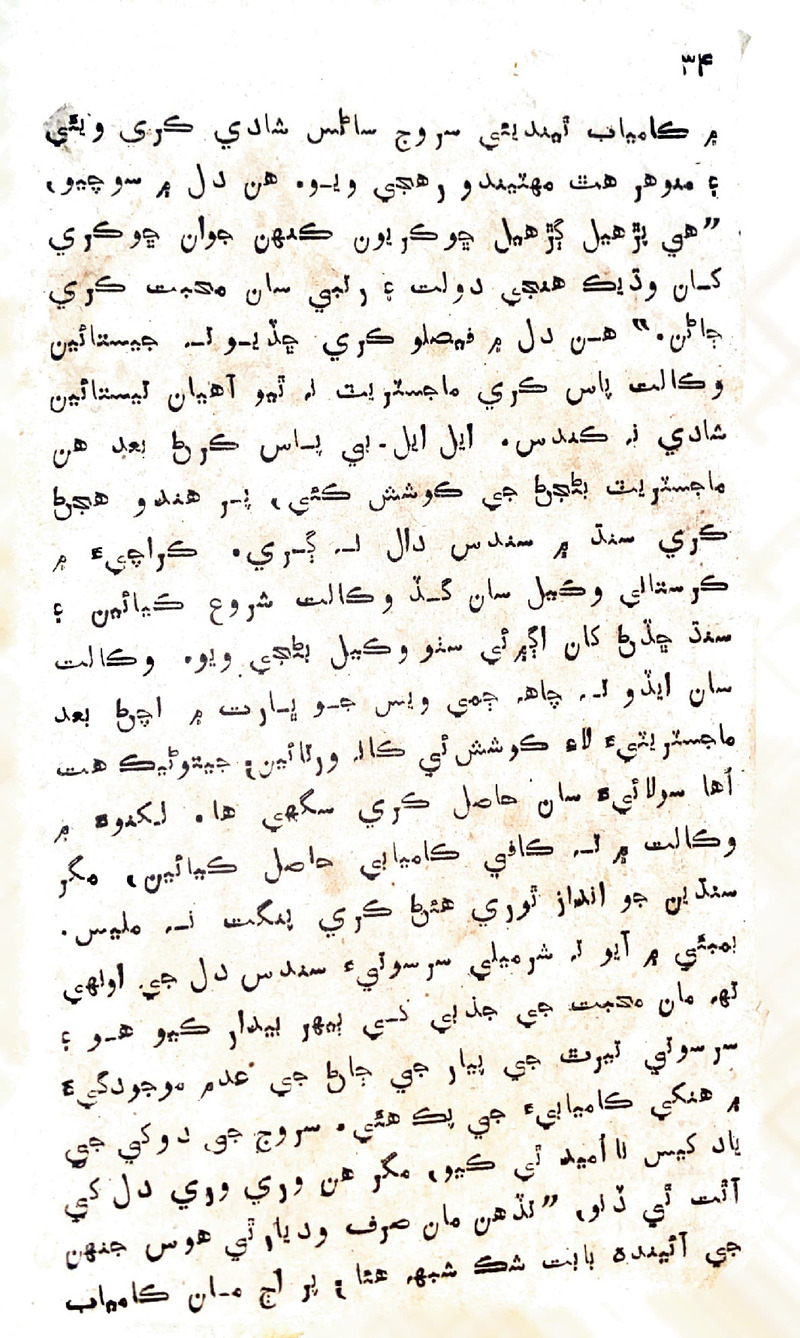 ۳۴
۾ ڪامياب ٿينديئي سروج ساڻس شادي ڪري ويئي
۽ منوهر هٿ مهٽيندو رهجي ويـو. هن دل ۾ سوچيو،
”هي پڙهيل ڳڙهيل ڇوڪريون ڪنهن جوان ڇوڪري
کـان وڌيڪ هنجي دولت ۽ رتبي سان محبت ڪري
ڄاڻن.“ هـن دل ۾ فيصلو ڪري ڇڏيـو تـ جيستائين
وڪالت پاس ڪري ماجسٽريٽ نہ ٿيو آهيان تيستائين
شادي نہ ڪندس. ايل ايل.بي پـاس ڪرڻ بعد هن
ماجسٽريٽ بڻجڻ جي ڪوشش ڪئي، پـر هندو هجڻ
ڪري سنڌ ۾ سندس دال نـ ڳـري. ڪراچيءَ ۾
ڪرستالي وڪيل سان گـڏ وڪالت شروع ڪيائين ۽
سنڌ ڇڏڻ کان اڳ ۾ ئي سٺو وڪيل بڻجي ويو. وڪالت
سان ايڏو تـ چاهہ ڄمي ويس جـو ڀـارت ۾ اچڻ بعد
ماجسٽريٽيءَ لاءِ ڪوشش ئي ڪانہ ورتائين؛ جيتوڻيڪ هت
اُها سولائيءَ سان حاصل ڪري سگهي ها. لکنوءَ ۾
وڪالت ۾ تـ ڪافي ڪاميابي حاصل ڪيائين، مگر
سنڌين جو انداز ٿوري هئڻ ڪري پنگت نـ مليس.
بمبئي ۾ آيو تہ شرميلي سرسوتيءَ سندس دل جي اونهي
تهہ مان محبت جي جذبي کـي ٻيهر بيدار ڪيو هـو ۽
سرسوتي تيرٿ جي پيار جي ڄاڻ جي عدم موجودگيءَ
۾ هنکي ڪاميابيءَ جي پڪ هئي. سروج جي دوکي جي
ياد کيس نااُميد ٿي ڪيو، مگر هن وري وري دل کي
آٿت ٿي ڏنو، ”تڏهن مان صرف وديارٿي هوس جنهن
جي آئينده بابت شڪ شبهہ هئا؛ پر اڄ مـان ڪامياب